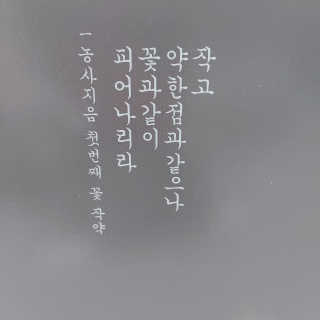 작고
약한점과같으나
꽃과같이
피어나리라
- 농사지음 첫번째 꽃 작약